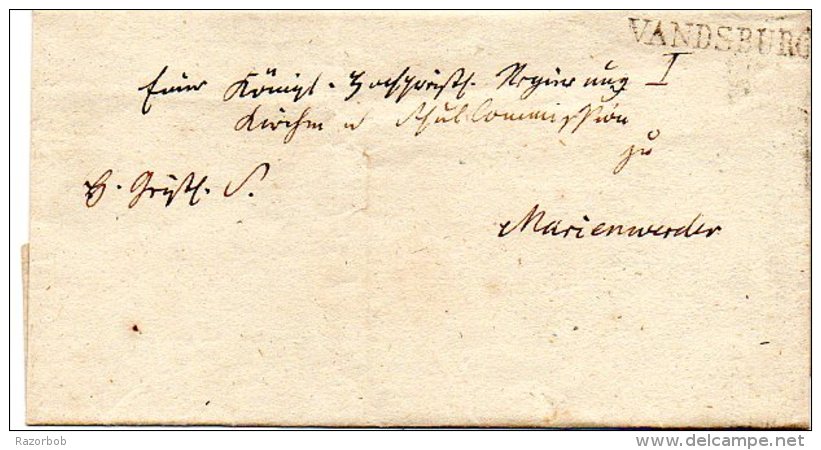 VANDSBURG
Einer Königl. Hochpreißl. Regierung I
Kirchen u Schul Commission
zu
Marienwerder
Razorbob
www.delcampe.net